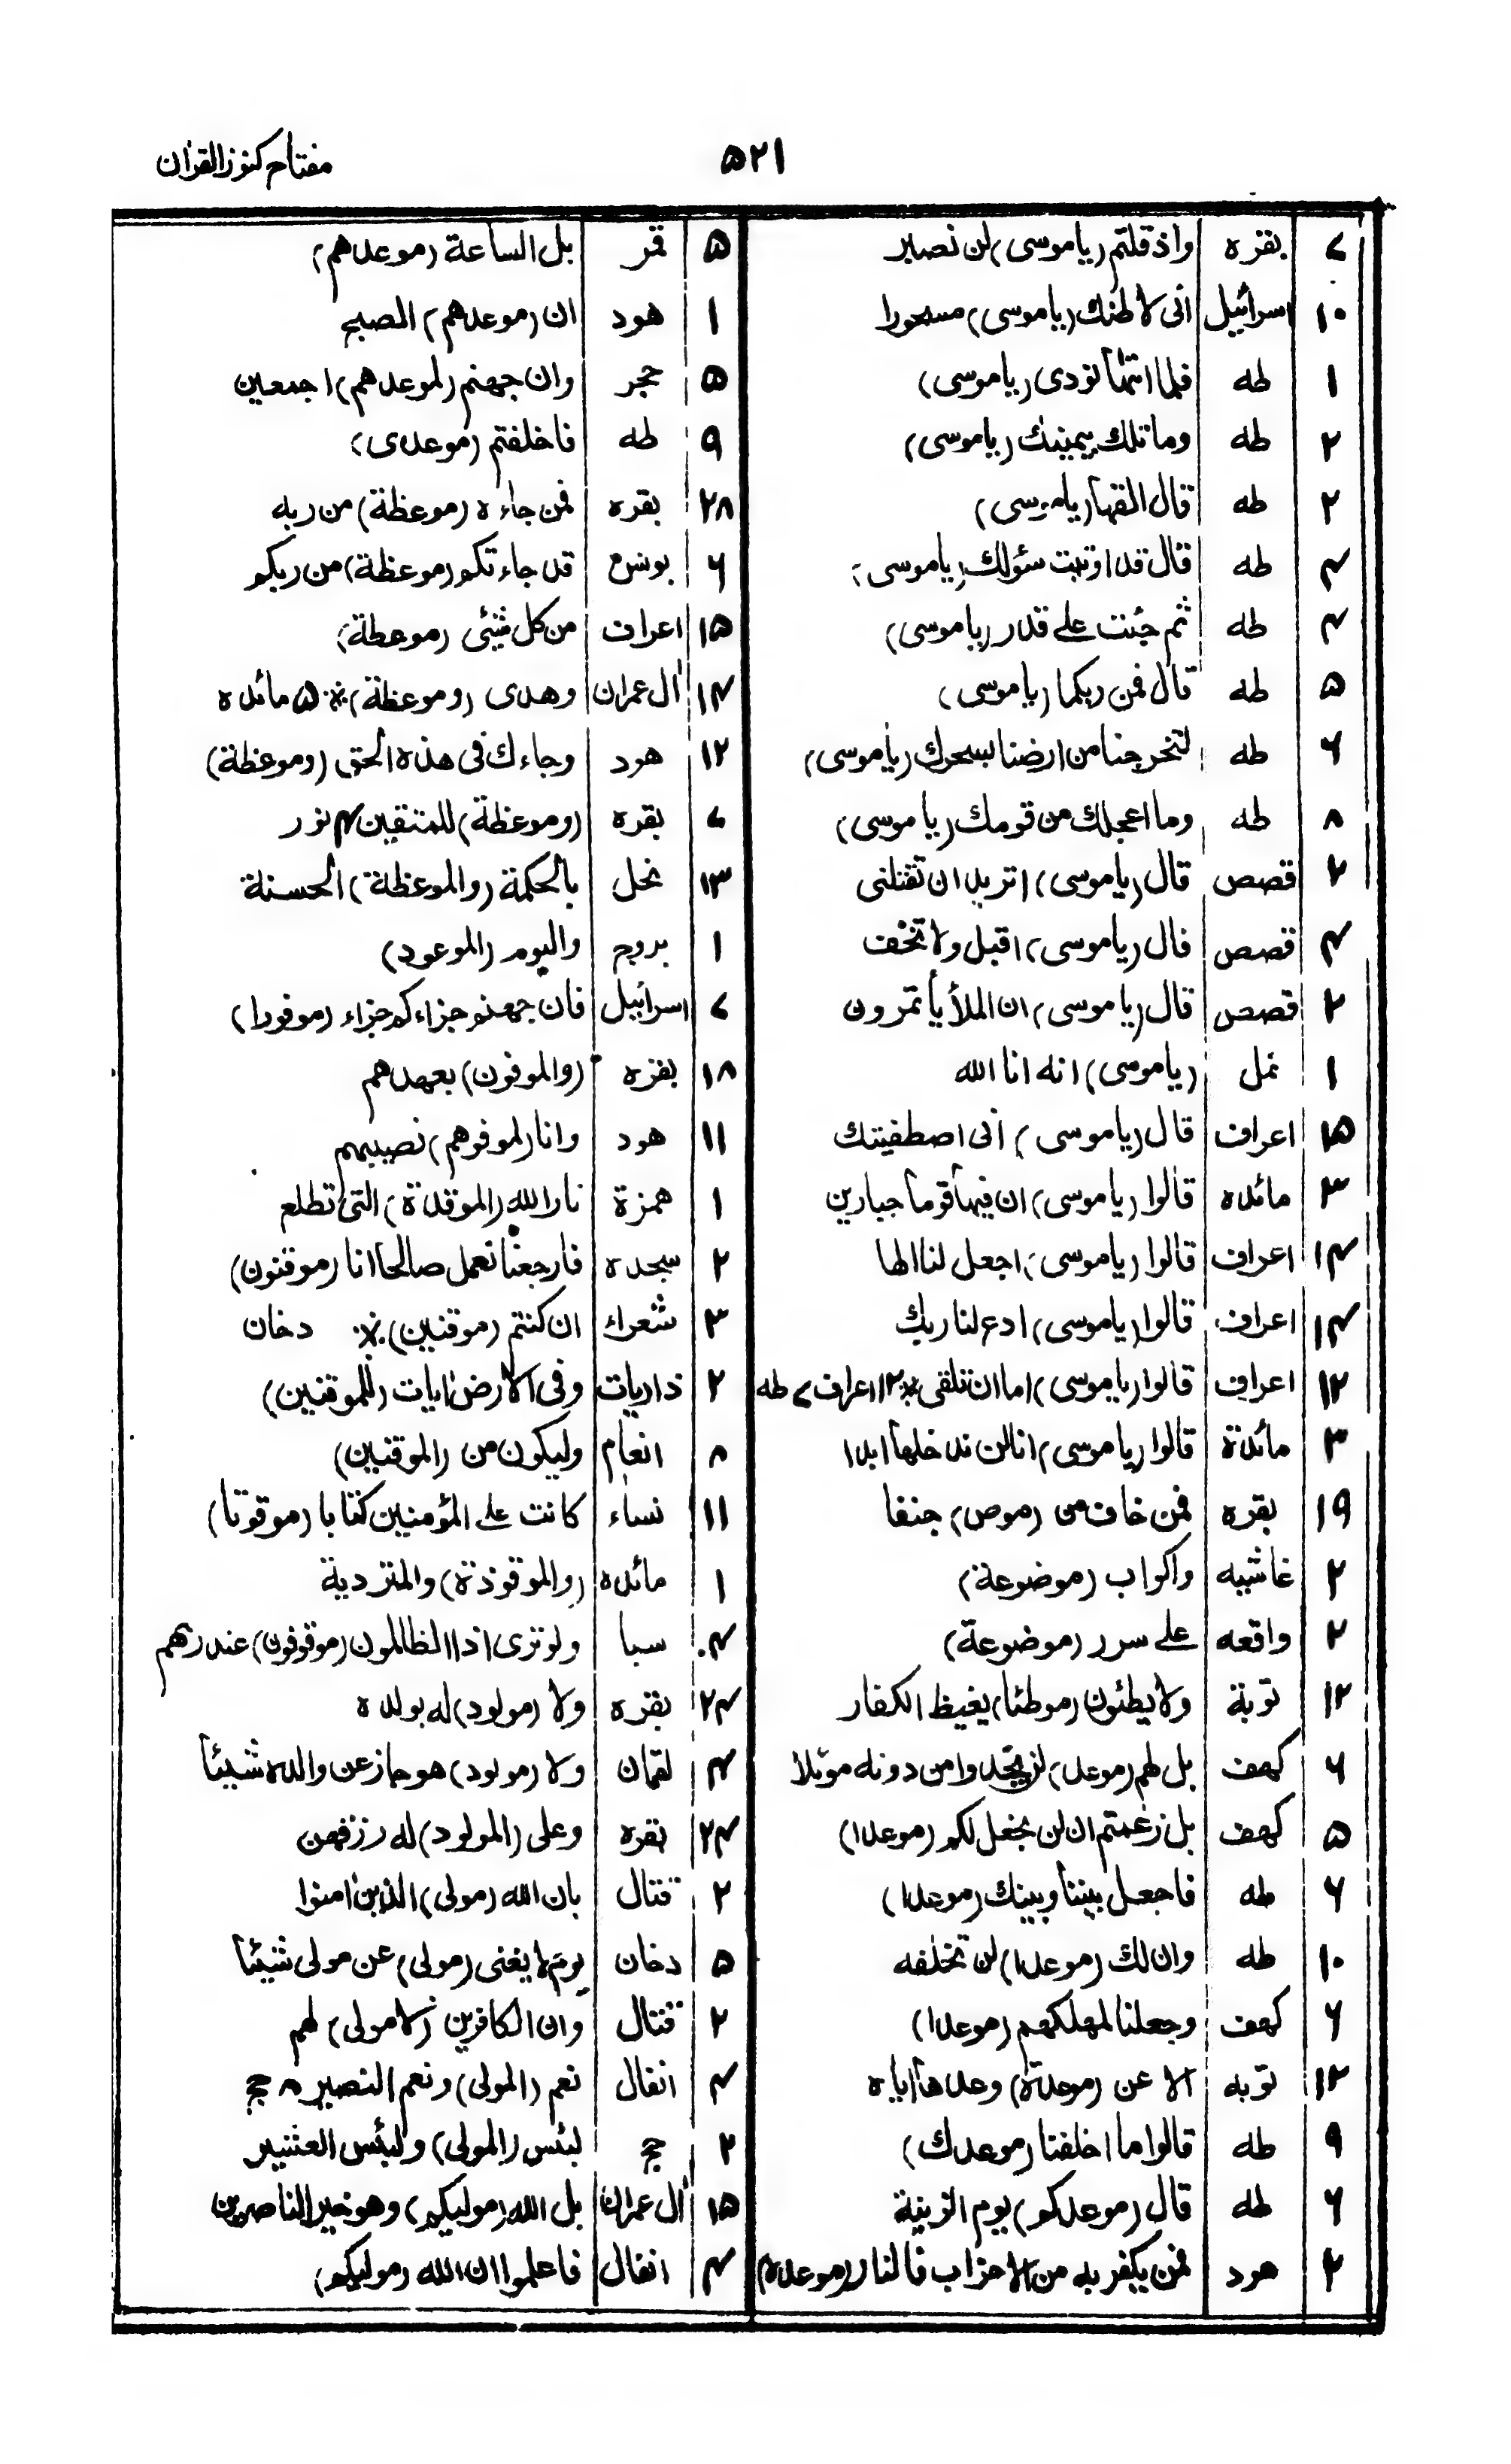 مفتاح كنوز القران
۵۲۱
۷ بقره واذ قلتم (ياموسى) لن نصبر
۱۰ اسرائيل انى لاظنك (ياموسى) مسحورا
۱ طه فلما اتتها نودى (ياموسى)
۲ طه وما تلك بيمينك (ياموسى)
۲ طه قال القها (ياموسى)
۴ طه قال قد اوتيت سئولك (ياموسى)
۴ طه ثم جئت على قدر (ياموسى)
۵ طه قال فمن ربكما (ياموسى)
۶ طه لتخرجنا من ارضنا بسحرك (ياموسى)
۸ طه وما اعجلك من قومك (ياموسى)
۲ قصص قال (ياموسى) اتريد ان تقتلنى
۴ قصص قال (ياموسى) اقبل ولا تخف
۲ قصص قال (ياموسى) ان الملأ يأتمرون
۱ نمل (ياموسى) انه انا الله
۱۵ اعراف قال (ياموسى) انى اصطفيتك
۳ مائده قالوا (ياموسى) ان فيها قوما جبارين
۱۴ اعراف قالوا (ياموسى) اجعل لنا الها
۱۴ اعراف قالوا (ياموسى) ادع لنا ربك
۱۲ اعراف قالوا (ياموسى) اما ان تلقى ٪ ۱۲ اعراف ۷ طه
۳ مائدة قالوا (ياموسى) انا لن ندخلها ابدا
۱۹ بقره فمن خاف من (موص) جنفا
۲ غاشيه واكواب (موضوعة)
۲ واقعه على سرر (موضوعة)
۱۲ توبة ولا يطئون (موطئا) يغيظ الكفار
۶ كهف بل لهم (موعد) لن يجدوا من دونه موئلا
۵ كهف بل زعمتم ان لن نجعل لكم (موعدا)
۶ طه فاجعل بيننا وبينك (موعدا)
۱۰ طه وان لك (موعدا) لن تخلفه
۶ كهف وجعلنا لمهلكهم (موعدا)
۱۲ توبه الا عن (موعدة) وعدها اياه
۹ طه قالوا ما اخلفنا (موعدك)
۶ طه قال (موعدكم) يوم الزينة
۲ هود فمن يكفر به من الاحزاب فالنار (موعده)
۵ قمر بل الساعة (موعدهم)
۱ هود ان (موعدهم) الصبح
۵ حجر وان جهنم (لموعدهم) اجمعين
۹ طه فاخلفتم (موعدى)
۲۸ بقره فمن جاءه (موعظة) من ربه
۶ يونس قد جاءتكم (موعظة) من ربكم
۱۵ اعراف من كل شئى (موعظة)
۱۴ ال عمران وهدى (وموعظة) ٪ ۵ مائده
۱۲ هود وجاءك فى هذه الحق (وموعظة)
۷ بقره (وموعظة) للمتقين ۴ نور
۱۳ نحل بالحكمة (والموعظة) الحسنة
۱ بروج واليوم (الموعود)
۷ اسرائيل فان جهنم جزاءكم جزاء (موفورا)
۱۸ بقره (والموفون) بعهدهم
۱۱ هود وانا (لموفوهم) نصيبهم
۱ همزة نار الله (الموقدة) التى تطلع
۲ سجده فارجعنا نعمل صالحا انا (موقنون)
۳ شعراء ان كنتم (موقنين) ٪ دخان
۲ ذاريات وفى الارض ايات (للموقنين)
۸ انعام وليكون من (الموقنين)
۱۱ نساء كانت على المؤمنين كتابا (موقوتا)
۱ مائده (والموقوذة) والمتردية
۴ سبا ولو ترى اذا الظالمون (موقوفون) عند ربهم
۲۴ بقره ولا (مولود) له بولده
۴ لقمان ولا (مولود) هو جاز عن والده شيئا
۲۴ بقره وعلى (المولود) له رزقهن
۲ قتال بان الله (مولى) الذين امنوا
۵ دخان يوم لا يغنى (مولى) عن مولى شيئا
۲ قتال وان الكافرين (لا مولى) لهم
۴ انفال نعم (المولى) ونعم النصير ۸ حج
۲ حج لبئس (المولى) ولبئس العشير
۱۵ ال عمران بل الله (موليكم) وهو خير الناصرين
۴ انفال فاعلموا ان الله (موليكم)